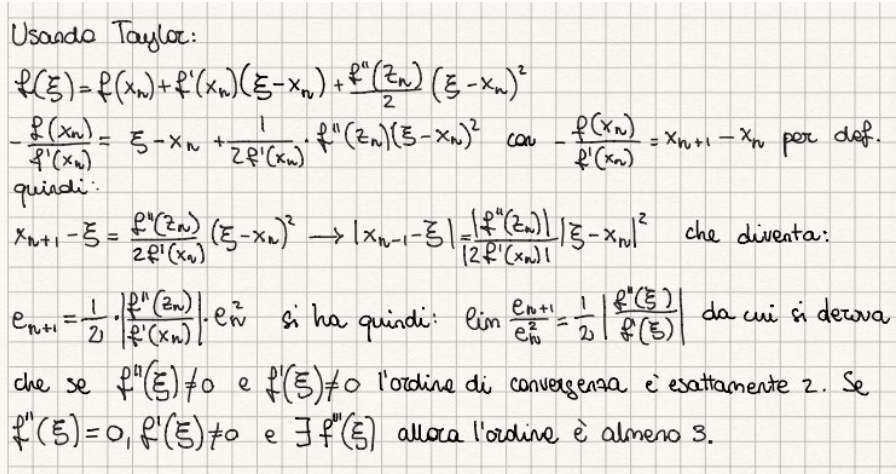 Usando Taylor:
f(ξ)=f(xₙ)+f'(xₙ)(ξ-xₙ)+f''(zₙ)/2 (ξ-xₙ)²
-f(xₙ)/f'(xₙ) = ξ-xₙ + 1/(2f'(xₙ)) · f''(zₙ)(ξ-xₙ)² con -f(xₙ)/f'(xₙ) = xₙ₊₁-xₙ per def.
quindi:
xₙ₊₁-ξ = f''(zₙ)/(2f'(xₙ)) (ξ-xₙ)² → |xₙ₋₁-ξ| = |f''(zₙ)|/|2f'(xₙ)| |ξ-xₙ|² che diventa:
eₙ₊₁ = 1/2 · |f''(zₙ)/f'(xₙ)| · eₙ² si ha quindi: lim eₙ₊₁/eₙ² = 1/2 |f''(ξ)/f'(ξ)| da cui si derova
che se f''(ξ)≠0 e f'(ξ)≠0 l'ordine di convergenza è esattamente 2. Se
f''(ξ)=0, f'(ξ)≠0 e ∃ f'''(ξ) allora l'ordine è almeno 3.